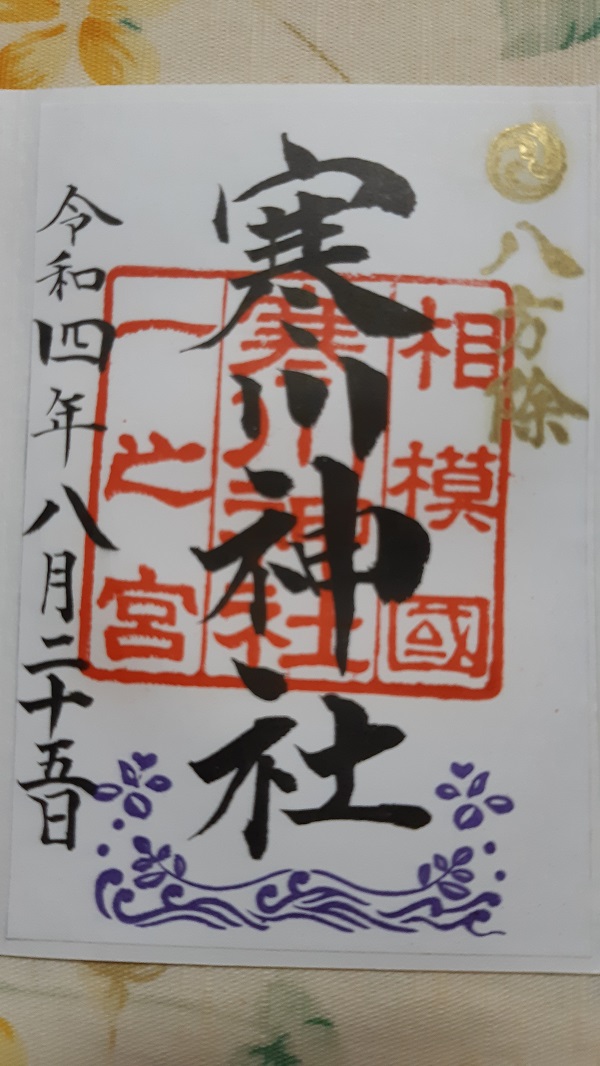 八方除
相模國
寒川神社
一之宮
寒川神社
令和四年八月二十五日